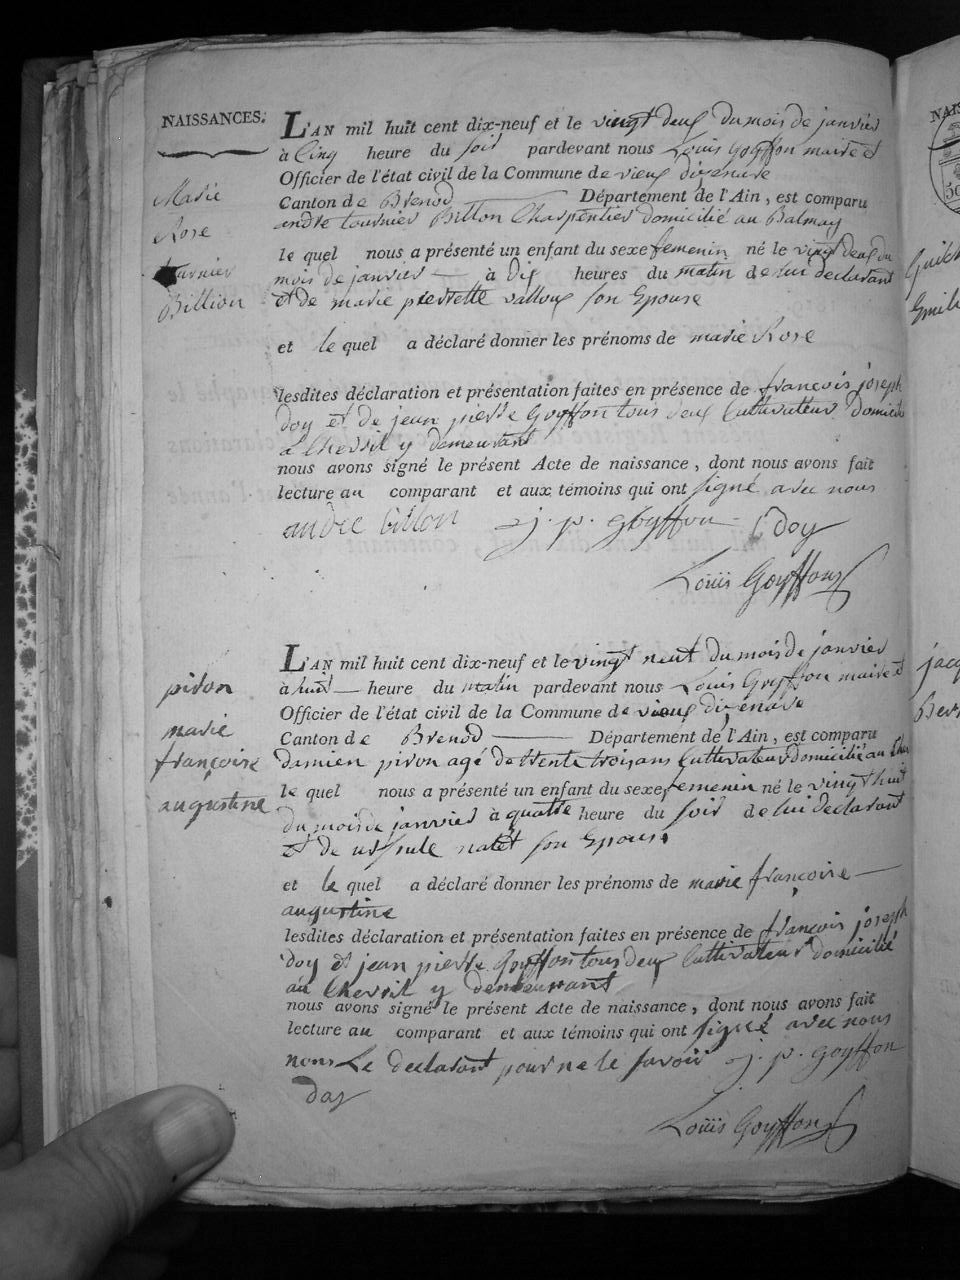 NAISSANCES.
Marie
Rose
tournier
Billion
L'AN mil huit cent dix-neuf et le vingt deux du mois de janvier
à Cinq heure du soir pardevant nous Louis Goyffon maire et
Officier de l'état civil de la Commune de vieux disenave
Canton de Brenod Département de l'Ain, est comparu
andre tournier Billon Charpentier domicilié au Balmay
le quel nous a présenté un enfant du sexe femenin né le vingt deux du
mois de janvier à Dix heures du matin de lui declarant
et de marie pierrette valloux son Epouse
et le quel a déclaré donner les prénoms de marie Rose
lesdites déclaration et présentation faites en présence de françois joseph
doy et de jean pierre Goyffon tous deux Cultivateur domicilié
a Chevril y demeurant
nous avons signé le présent Acte de naissance, dont nous avons fait
lecture au comparant et aux témoins qui ont signé avec nous
andre billon j. p. goyffon doy
Louis Goyffon
piron
marie
françoise
augustine
L'AN mil huit cent dix-neuf et le vingt neuf du mois de janvier
à huit heure du matin pardevant nous Louis Goyffon maire et
Officier de l'état civil de la Commune de vieux disenave
Canton de Brenod Département de l'Ain, est comparu
damien piron agé de trente trois ans Cultivateur domicilié au
le quel nous a présenté un enfant du sexe femenin né le vingt huit
du mois de janvier à quatre heure du soir de lui declarant
et de urssule son Epouse
et le quel a déclaré donner les prénoms de marie françoise
augustine
lesdites déclaration et présentation faites en présence de françois joseph
doy et jean pierre Goyffon tous deux Cultivateur domicilié
au Chevril y demeurant
nous avons signé le présent Acte de naissance, dont nous avons fait
lecture au comparant et aux témoins qui ont signé avec nous
non Le declarant pour ne le savoir j. p. goyffon
doy
Louis Goyffon